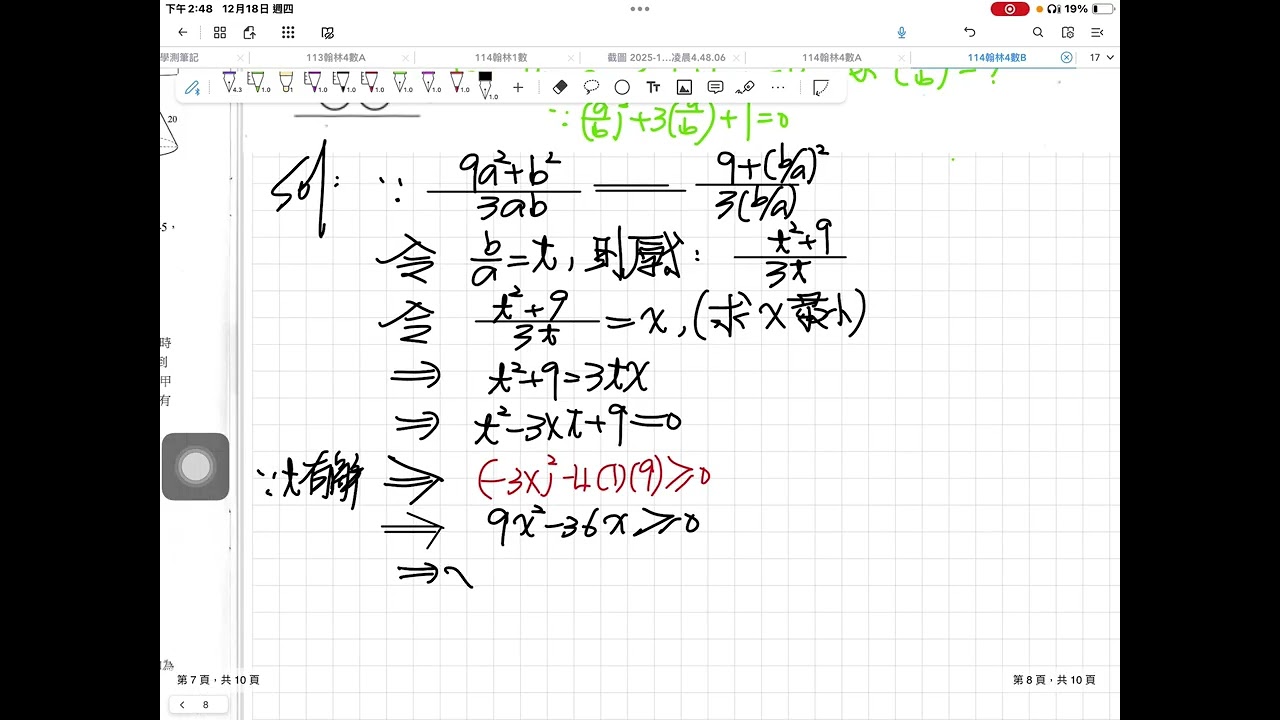 下午2:48 12月18日 週四
19%
學測筆記 113翰林4數A 114翰林1數 截圖 2025-1...凌晨4.48.06 114翰林4數A 114翰林4數B 17
4.3 1.0 1.0 1.0 1.0 1.0 1.0 1.0 1.0
(b)=?
∵(a/b)²+3(a/b)+1=0
20
sol: ∵ (9a²+b²)/(3ab) = (9+(b/a)²)/(3(b/a))
令 b/a=t, 則原式: (t²+9)/(3t)
令 (t²+9)/(3t)=x, (求x最小)
⇒ t²+9=3tx
⇒ t²-3xt+9=0
∵t有解 ⇒ (-3x)²-4(1)(9)≥0
⇒ 9x²-36x≥0
⇒
時
到
甲
有
為
第 7 頁，共 10 頁
第 8 頁，共 10 頁
8